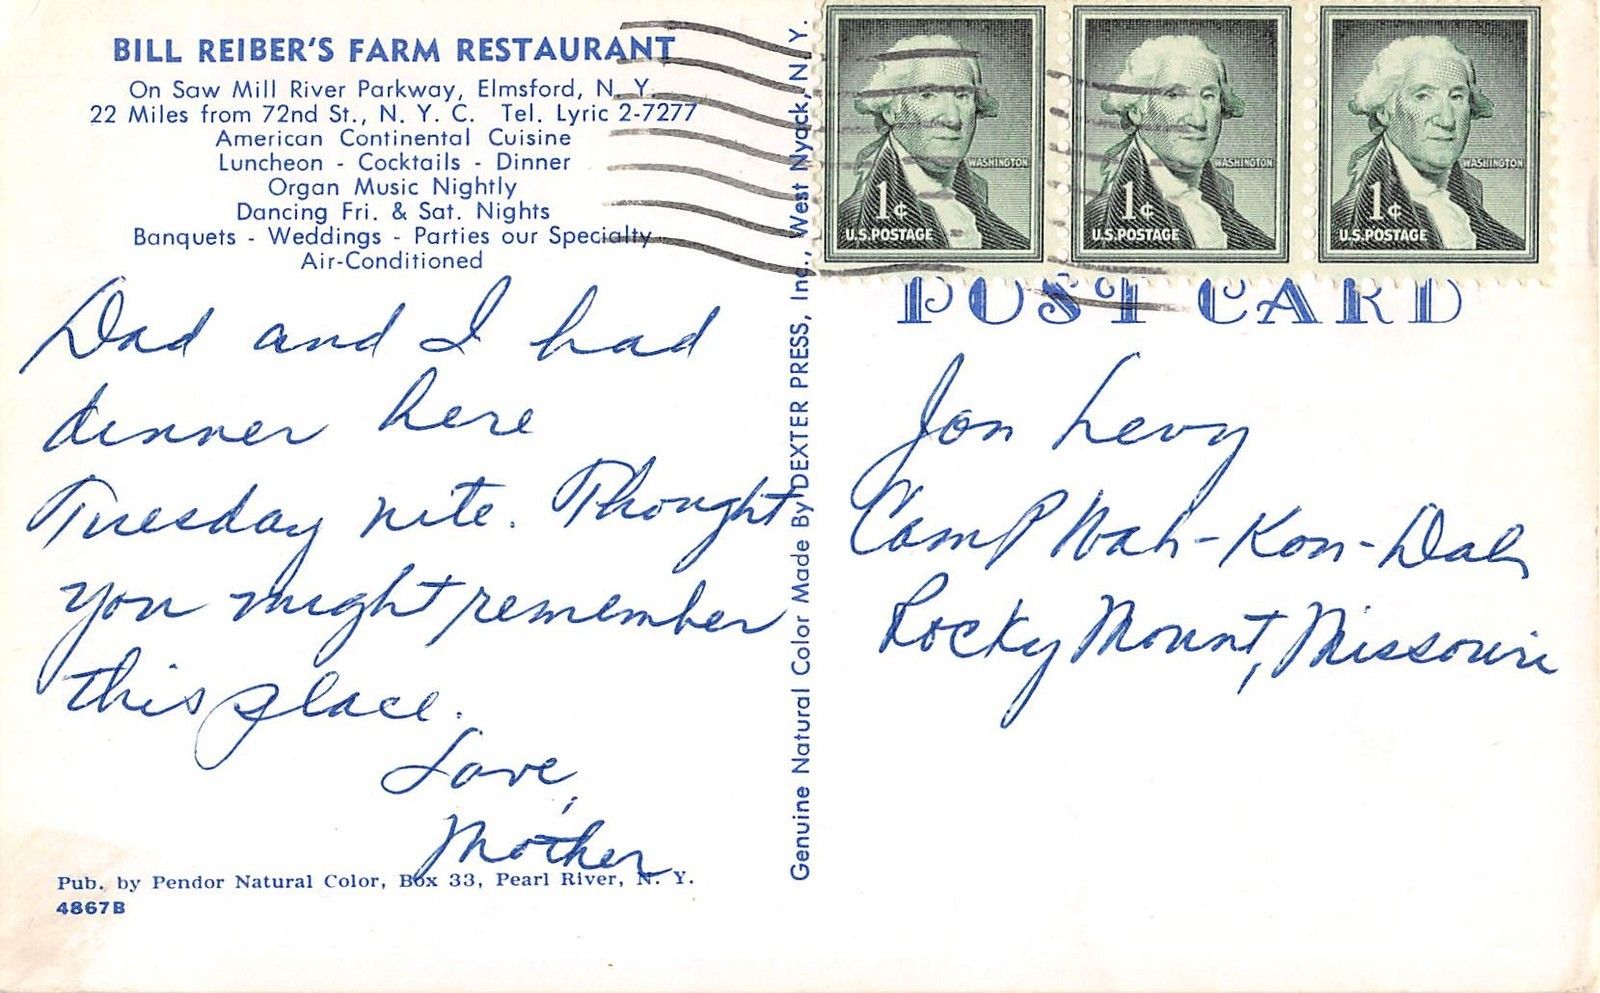 BILL REIBER'S FARM RESTAURANT
On Saw Mill River Parkway, Elmsford, N. Y.
22 Miles from 72nd St., N. Y. C. Tel. Lyric 2-7277
American Continental Cuisine
Luncheon - Cocktails - Dinner
Organ Music Nightly
Dancing Fri. & Sat. Nights
Banquets - Weddings - Parties our Specialty
Air-Conditioned
Dad and I had
dinner here
Tuesday nite. Thought
you might remember
this place.
Love,
Mother
Pub. by Pendor Natural Color, Box 33, Pearl River, N. Y.
4867B
Genuine Natural Color Made By DEXTER PRESS, Inc., West Nyack, N. Y.
WASHINGTON
1¢
U.S. POSTAGE
WASHINGTON
1¢
U.S. POSTAGE
WASHINGTON
1¢
U.S. POSTAGE
POST CARD
Jon Levy
Camp Wah-Kon-Dah
Rocky Mount, Missouri